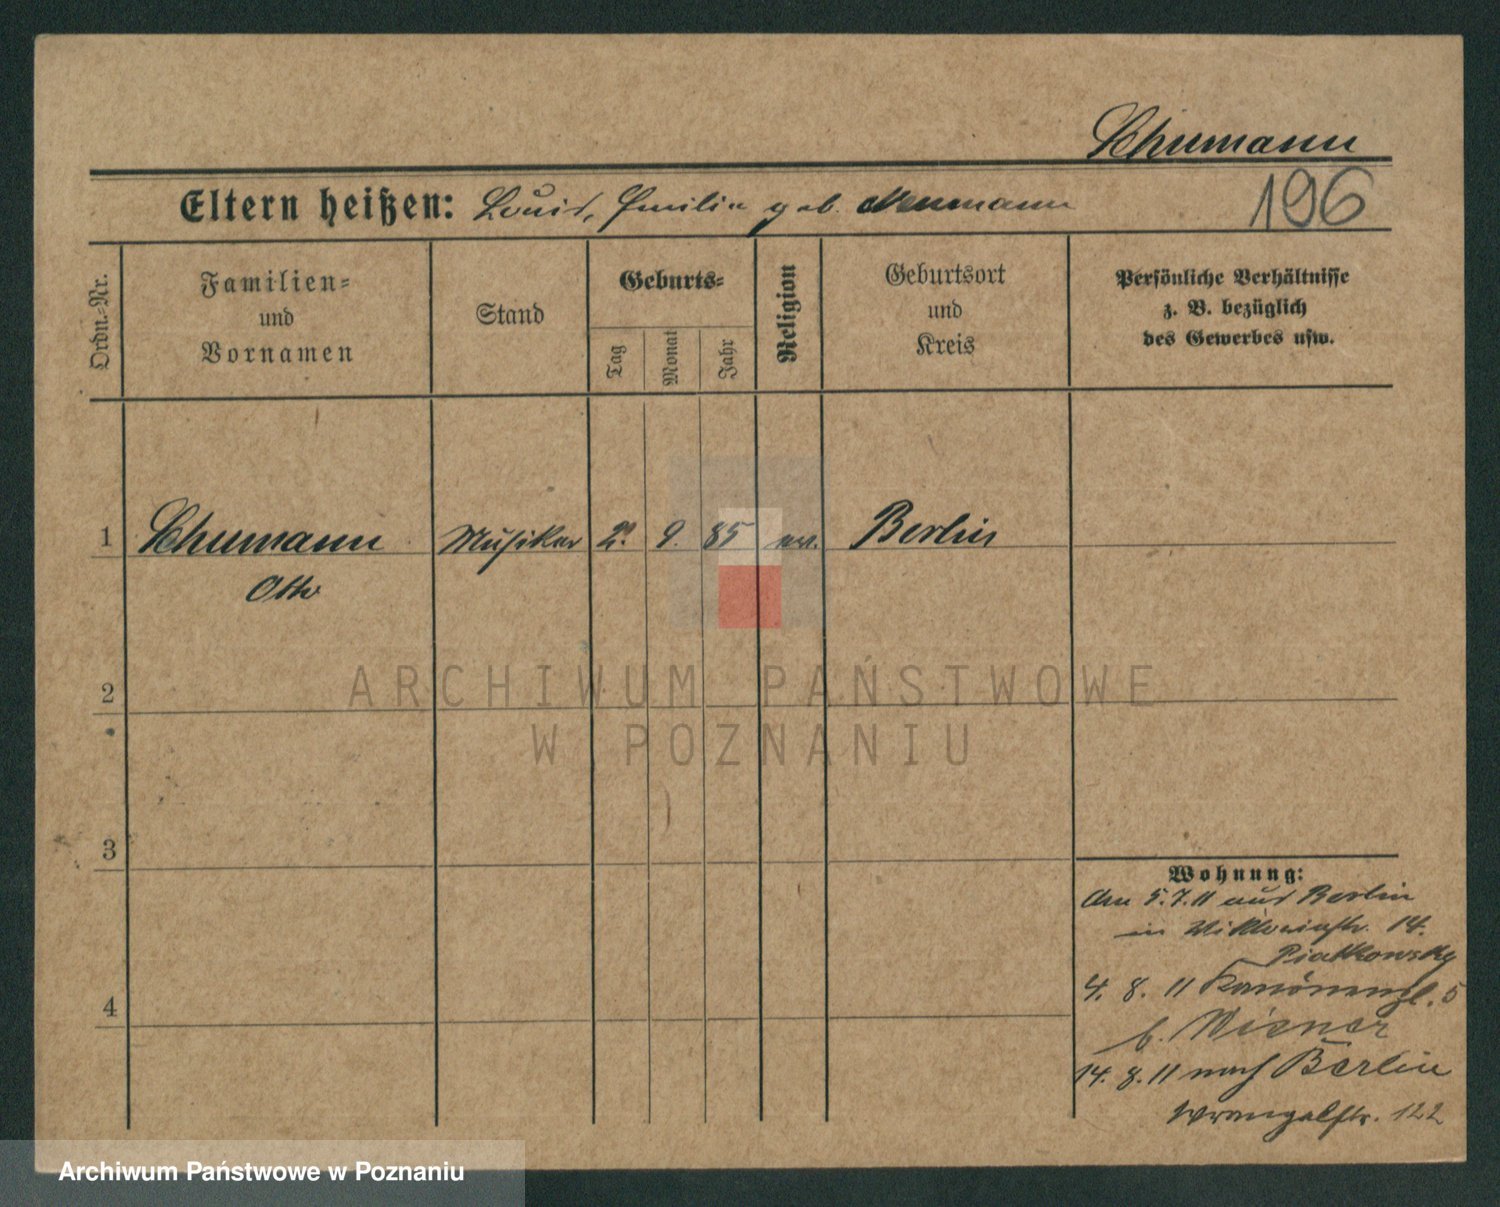 Schumann
Eltern heißen: Louis, Emilie geb. Neumann
196
Ordn.-Nr.
Familien-
und
Vornamen
Stand
Geburts-
Tag
Monat
Jahr
Religion
Geburtsort
und
Kreis
Persönliche Verhältnisse
z. B. bezüglich
des Gewerbes usw.
1 Schumann Musiker 2. 9. 85 ev. Berlin
Otto
2
3
4
Wohnung:
Am 5.7.11 aus Berlin
in Viktoriastr. 14.
Piatkowsky
4. 8. 11 Kanonenpl. 5
b. Wiener
14. 8. 11 nach Berlin
Wrangelstr. 122
ARCHIWUM PAŃSTWOWE
W POZNANIU
Archiwum Państwowe w Poznaniu